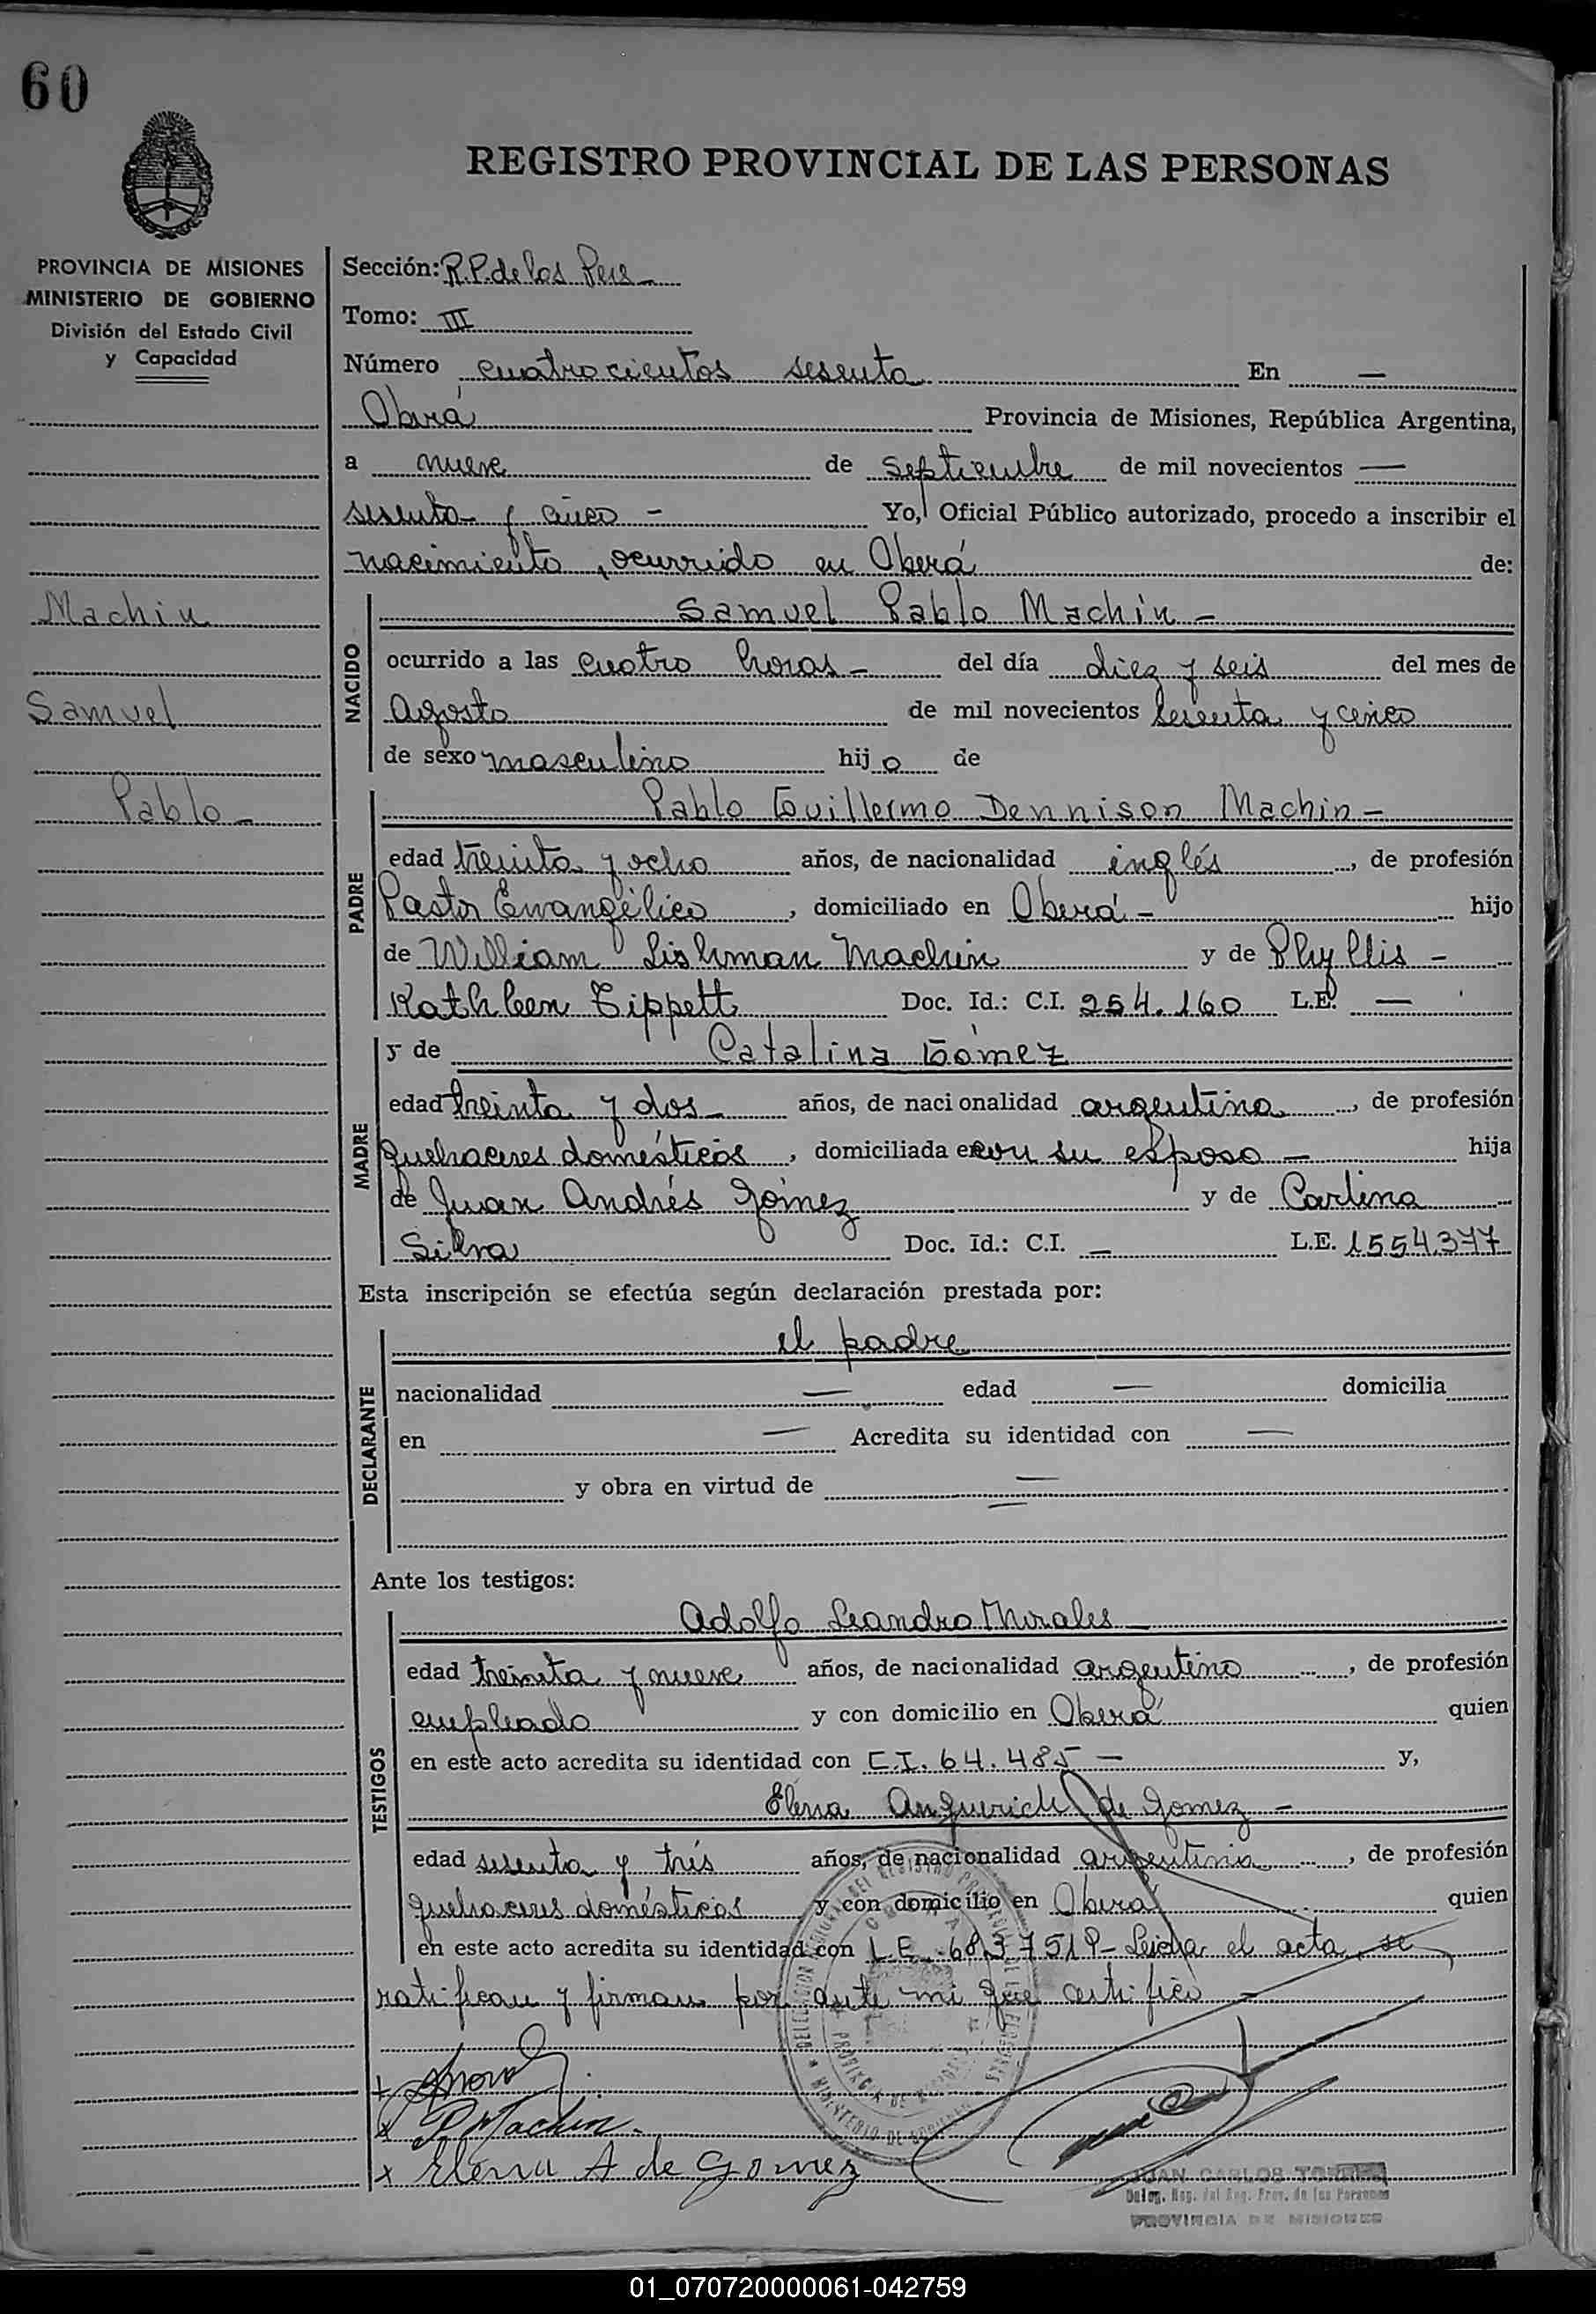 60
REGISTRO PROVINCIAL DE LAS PERSONAS
PROVINCIA DE MISIONES
MINISTERIO DE GOBIERNO
División del Estado Civil
y Capacidad
Machin
Samuel
Pablo -
Sección: R.P. de los Pers
Tomo: III
Número cuatrocientos sesenta En —
Oberá Provincia de Misiones, República Argentina,
a nueve de septiembre de mil novecientos —
sesenta y cinco - Yo, Oficial Público autorizado, procedo a inscribir el
nacimiento, ocurrido en Oberá de:
NACIDO
Samuel Pablo Machin -
ocurrido a las cuatro horas - del día diez y seis del mes de
Agosto de mil novecientos sesenta y cinco
de sexo masculino hijo de
PADRE
Pablo Guillermo Dennison Machin -
edad treinta y ocho años, de nacionalidad inglés, de profesión
Pastor Evangélico, domiciliado en Oberá - hijo
de William Lishman Machin y de Phyllis -
Kathleen Tippett Doc. Id.: C.I. 254.160 L.E. —
MADRE
y de Catalina Gómez
edad treinta y dos - años, de nacionalidad argentina, de profesión
quehaceres domésticos, domiciliada con su esposo - hija
de Juan Andrés Gómez y de Carlina
Silva Doc. Id.: C.I. — L.E. 1554.377
Esta inscripción se efectúa según declaración prestada por:
DECLARANTE
el padre
nacionalidad — edad — domicilia
en — Acredita su identidad con —
y obra en virtud de —
Ante los testigos:
TESTIGOS
Adolfo Leandro Morales
edad treinta y nueve años, de nacionalidad argentino, de profesión
empleado y con domicilio en Oberá quien
en este acto acredita su identidad con C.I. 64.485 — y,
Elena de Gomez -
edad sesenta y trés años, de nacionalidad argentina, de profesión
quehaceres domésticos y con domicilio en Oberá quien
en este acto acredita su identidad con L.E. Leida el acta, se
ratifican y firman por ante mi que certifico -
x P Machin.
x Elena A de Gomez
JUAN CARLOS
Deleg. Reg. del Reg. Prov. de las Personas
PROVINCIA DE MISIONES
01_070720000061-042759